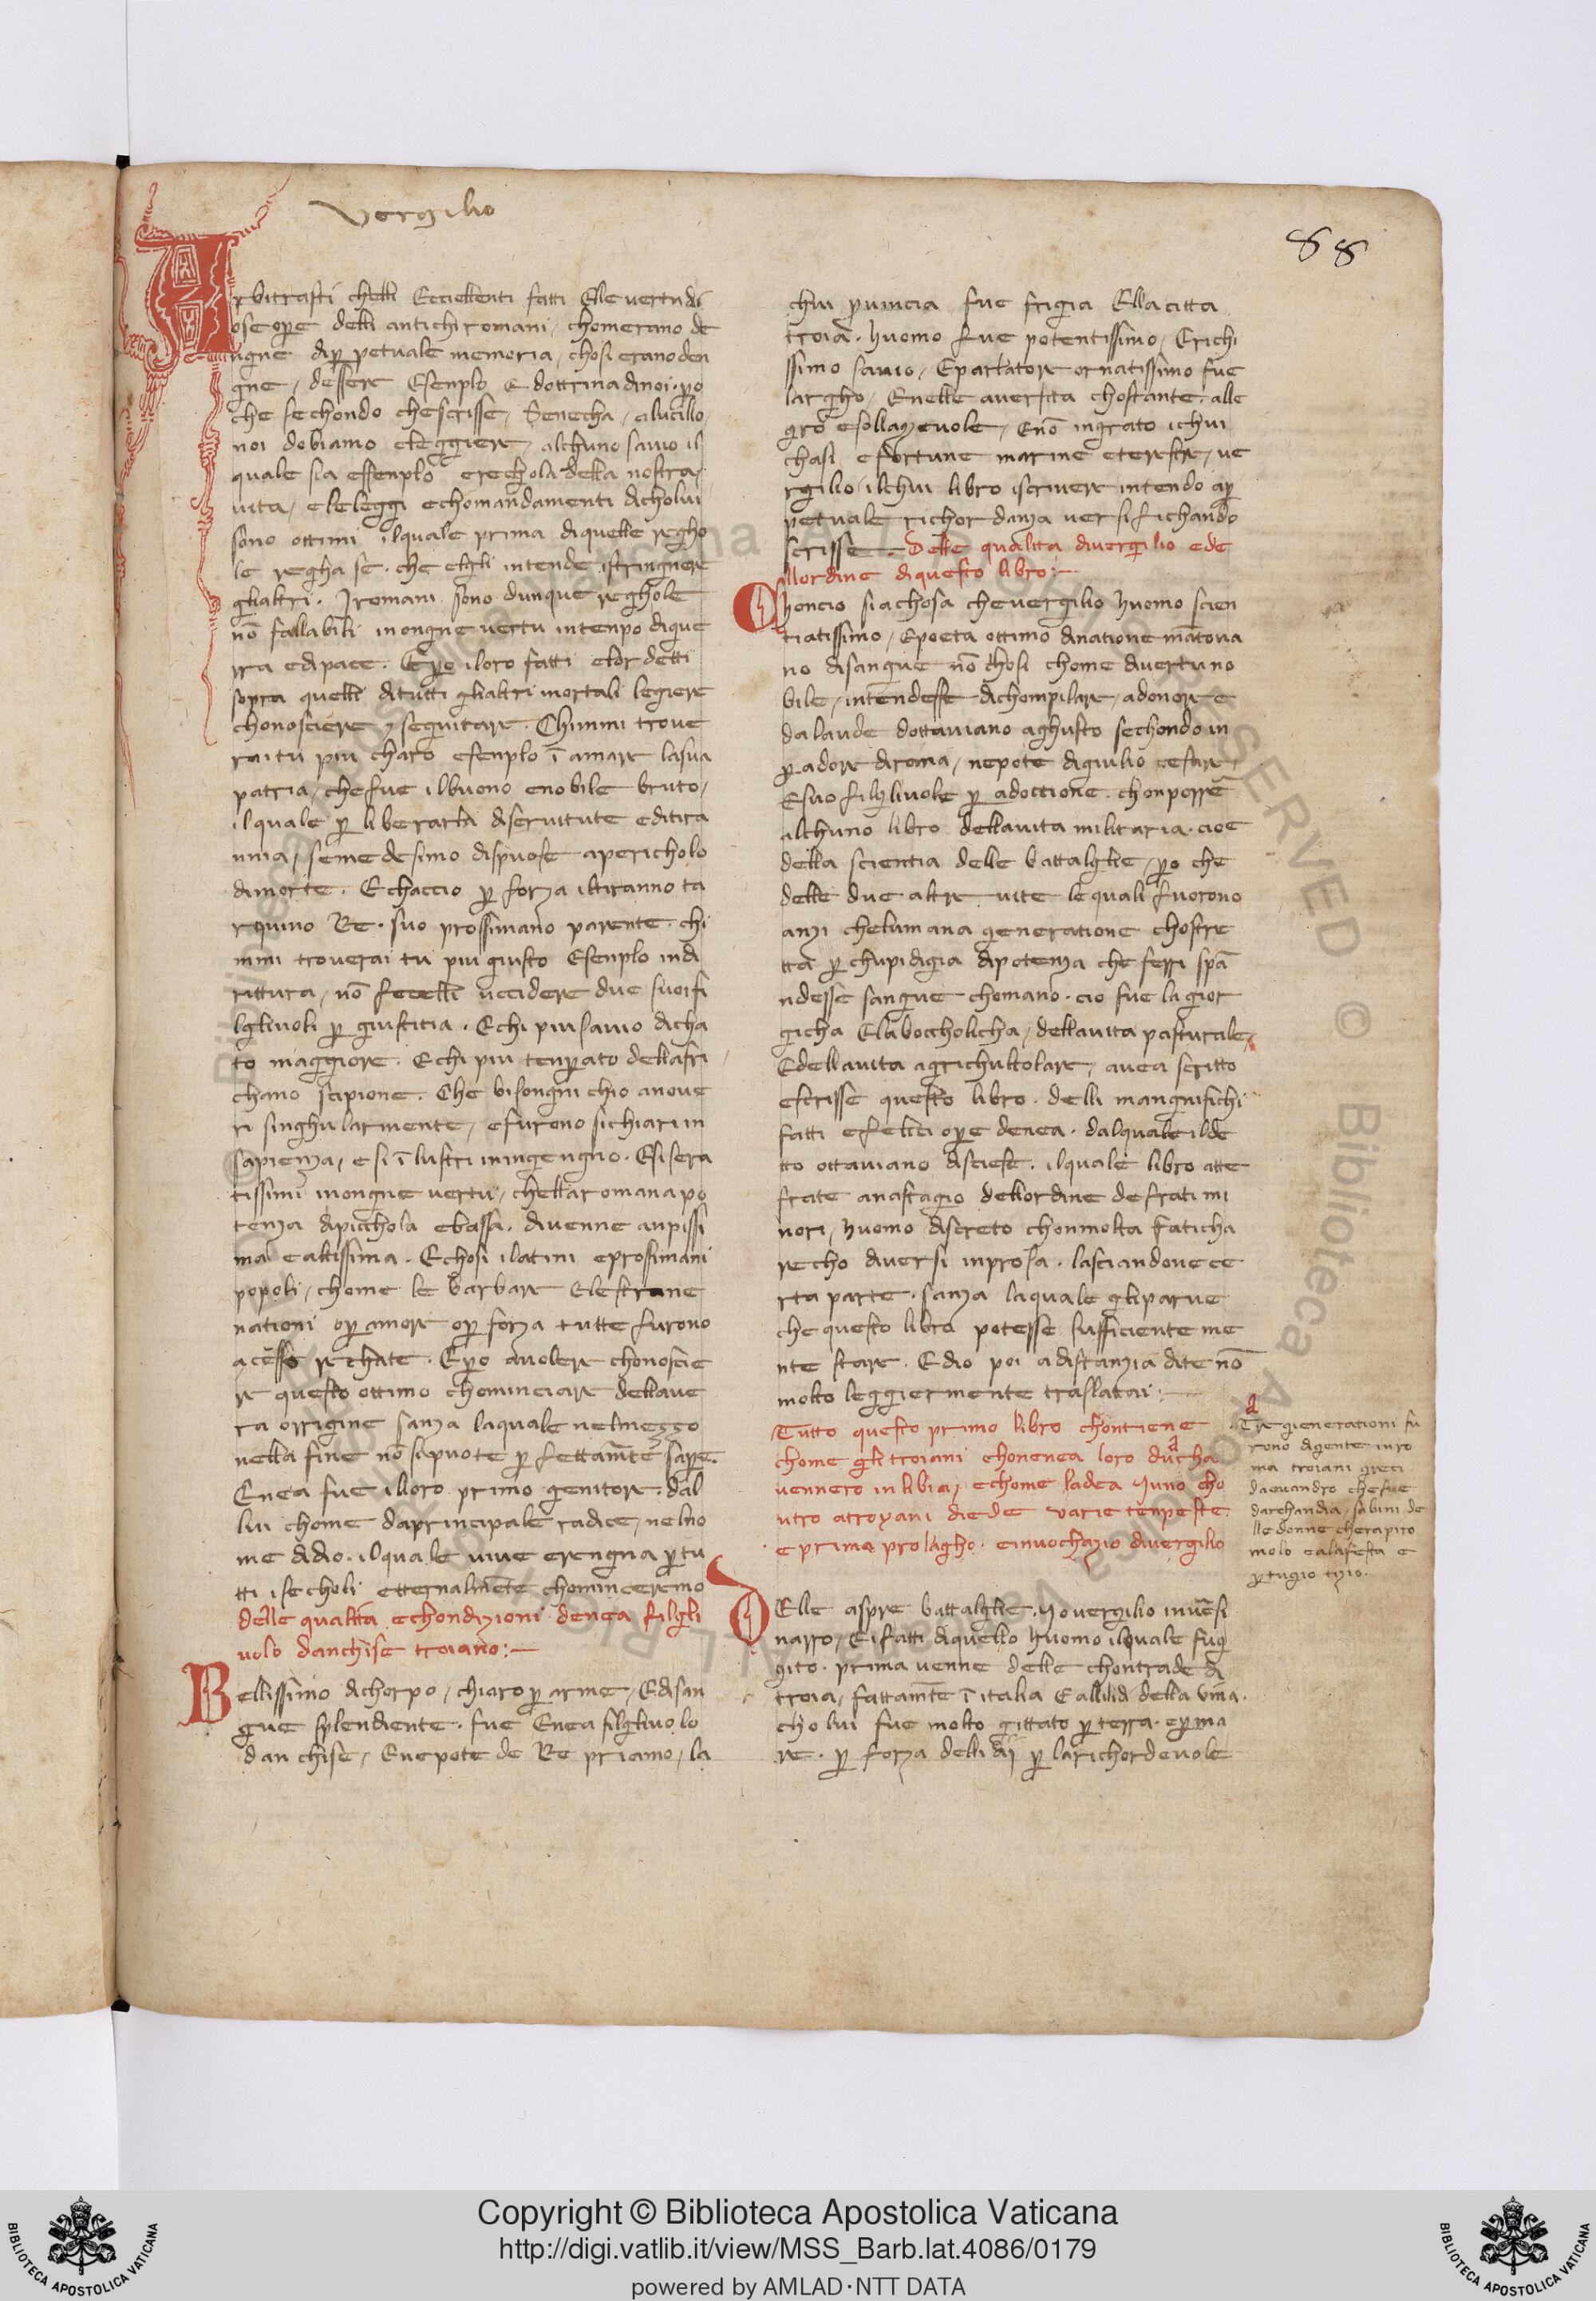 Vergilio
88
Arbitrasti chelli Eccellenti fatti Elle vertudi
ose opere delli antichi romani, chomerano de
ngne di perpetuale memoria, chosi erano den
gne, dessere Esenplo & dottrina dinoi. pero
che sechondo chescrisse, Senecha, alucillo
noi dobiamo eleggiere, alchuno savio il
quale sia essenplo erechola della nostra,
vita, eleleggi echomandamenti dicholui
sono ottimi ilquale prima diquelle regho
le regha se. che eghli intende istringnere
glialtri. Iromani sono dunque reghole
nō fallabili inongne vertu intenpo digue
rra edipace. Epero iloro fatti elor detti
sopra quelli ditutti glialtri mortali legiere
chonosciere 7 seguitare. Chimmi trove
raitu piu charo esenplo ī amare lasua
patria, chefue ilbuono enobile bruto,
ilquale per liberarla diservitute editira
nnia, semedesimo dispuose apericholo
dimorte. Echaccio per forza iltiranno ta
rquino Re. suo prossimano parente. chi
mmi troverai tu piu giusto Esenplo indi
rittura, nō fecelli uccidere due suoi fi
lglivoli per giustitia. Echi piu savio dicha
to maggiore. Echi piu tenperato dellafri
chano scipione. Che bisongni chio anove
ri singhularmente, efurono sichiari in
sapienza, esi īlustri iningengno. Esisera
tissimi inongne vertu, chellaromana po
tenza dipicchola ebassa. divenne anpissi
ma ealtissima. Echosi ilatini eprossimani
popoli, chome le barbare Elestrane
nationi oper amore oper forza tutte furono
adesso rechate. Epero avolere chonoscie
re questo ottimo chominciare dellave
ra origine sanza laquale nelmezzo
nella fine nō sipuote perfettamēte sapere.
Enea fue illoro primo genitore. dal
lui chome daprincipale radice, nelno
me didio. ilquale vive erengna per tu
tti isecholi etternalmēte chominceremo
delle qualita echondizioni denea filgli
volo danchise troiano:—
Bellissimo dichorpo, chiaro per arme, Edisan
gue splendiente. fue Enea filglivolo
danchise, Enepote de Re priamo, la
chui provincia fue frigia Ella citta
troia. huomo fue potentissimo, Erichi
ssimo savio, Eparlatore ornatissimo fue
largho, Enelle aversita chostante. alle
gro esollazevole, Enō ingrato ichui
chasi efortune marine eterestre, ve
rgilio, ilchui libro iscrivere intendo aper
petuale richordanza versifichando
scrisse. Delle qualita divergilio ede
llordine diquesto libro:—
Choncio siachosa chevergilio huomo scien
tiatissimo, Epoeta ottimo dinatione mātova
no disangue nō chosi chome divertu no
bile, intendesse dichompilare, adonore e
dalaude dottaviano aghusto sechondo in
peradore diroma, nepote digiulio cesare,
Esuo filglivole per adottione. chonporre
alchuno libro dellavita militaria. cioe
della scientia delle battalglie, pero che
delle due altre vite lequali fuorono
anzi chelumana generatione chostre
tta per chupidigia dipotenza che ferri spā
ndesse sangue chomano. cio fue lagior
gicha Elaboccholicha, dellavita pasturale,
Edellavita agrichultolare, avea scritto
escrisse questo libro. delli mangnifichi
fatti efelici opere denea. dalquale ilde
tto ottaviano disciese. ilquale libro atte
frate anastagio dellordine defrati mi
nori, huomo discreto chonmolta faticha
recho diversi inprosa. lasciandone ce
rta parte. sanza laquale gliparve
che questo libro potesse sufficiente me
nte stare. Edio poi adistanzia dite nō
molto leggiermente traslatai:—
Tutto questo primo libro chontiene
chome gli troiani chonenea loro ducha
vennero inlibia, echome ladea Juno cho
ntro atroyani diede varie tenpeste.
eprima prolagho. einvochazio divergilio
a
a
Tre gienerationi fu
rono digente inro
ma troiani greci
daevandro chefue
darchandia, sabini de
lle donne cherapiro
molo ealafesta e
pertugio tizio.
Delle aspre battalglie. Jovergilio invesi
narro, Eifatti diquello huomo ilquale fug
gito. prima venne delle chontrade di
troia, fattamēte ī italia Eallilidi della vina.
cholui fue molto gittato per terra. eperma
re. per forza delli dij per larichordevole